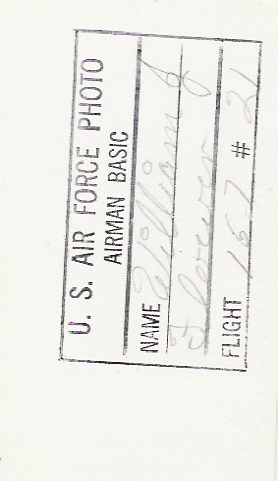 U. S. AIR FORCE PHOTO
AIRMAN BASIC
NAME William J
FLIGHT 157 # 21